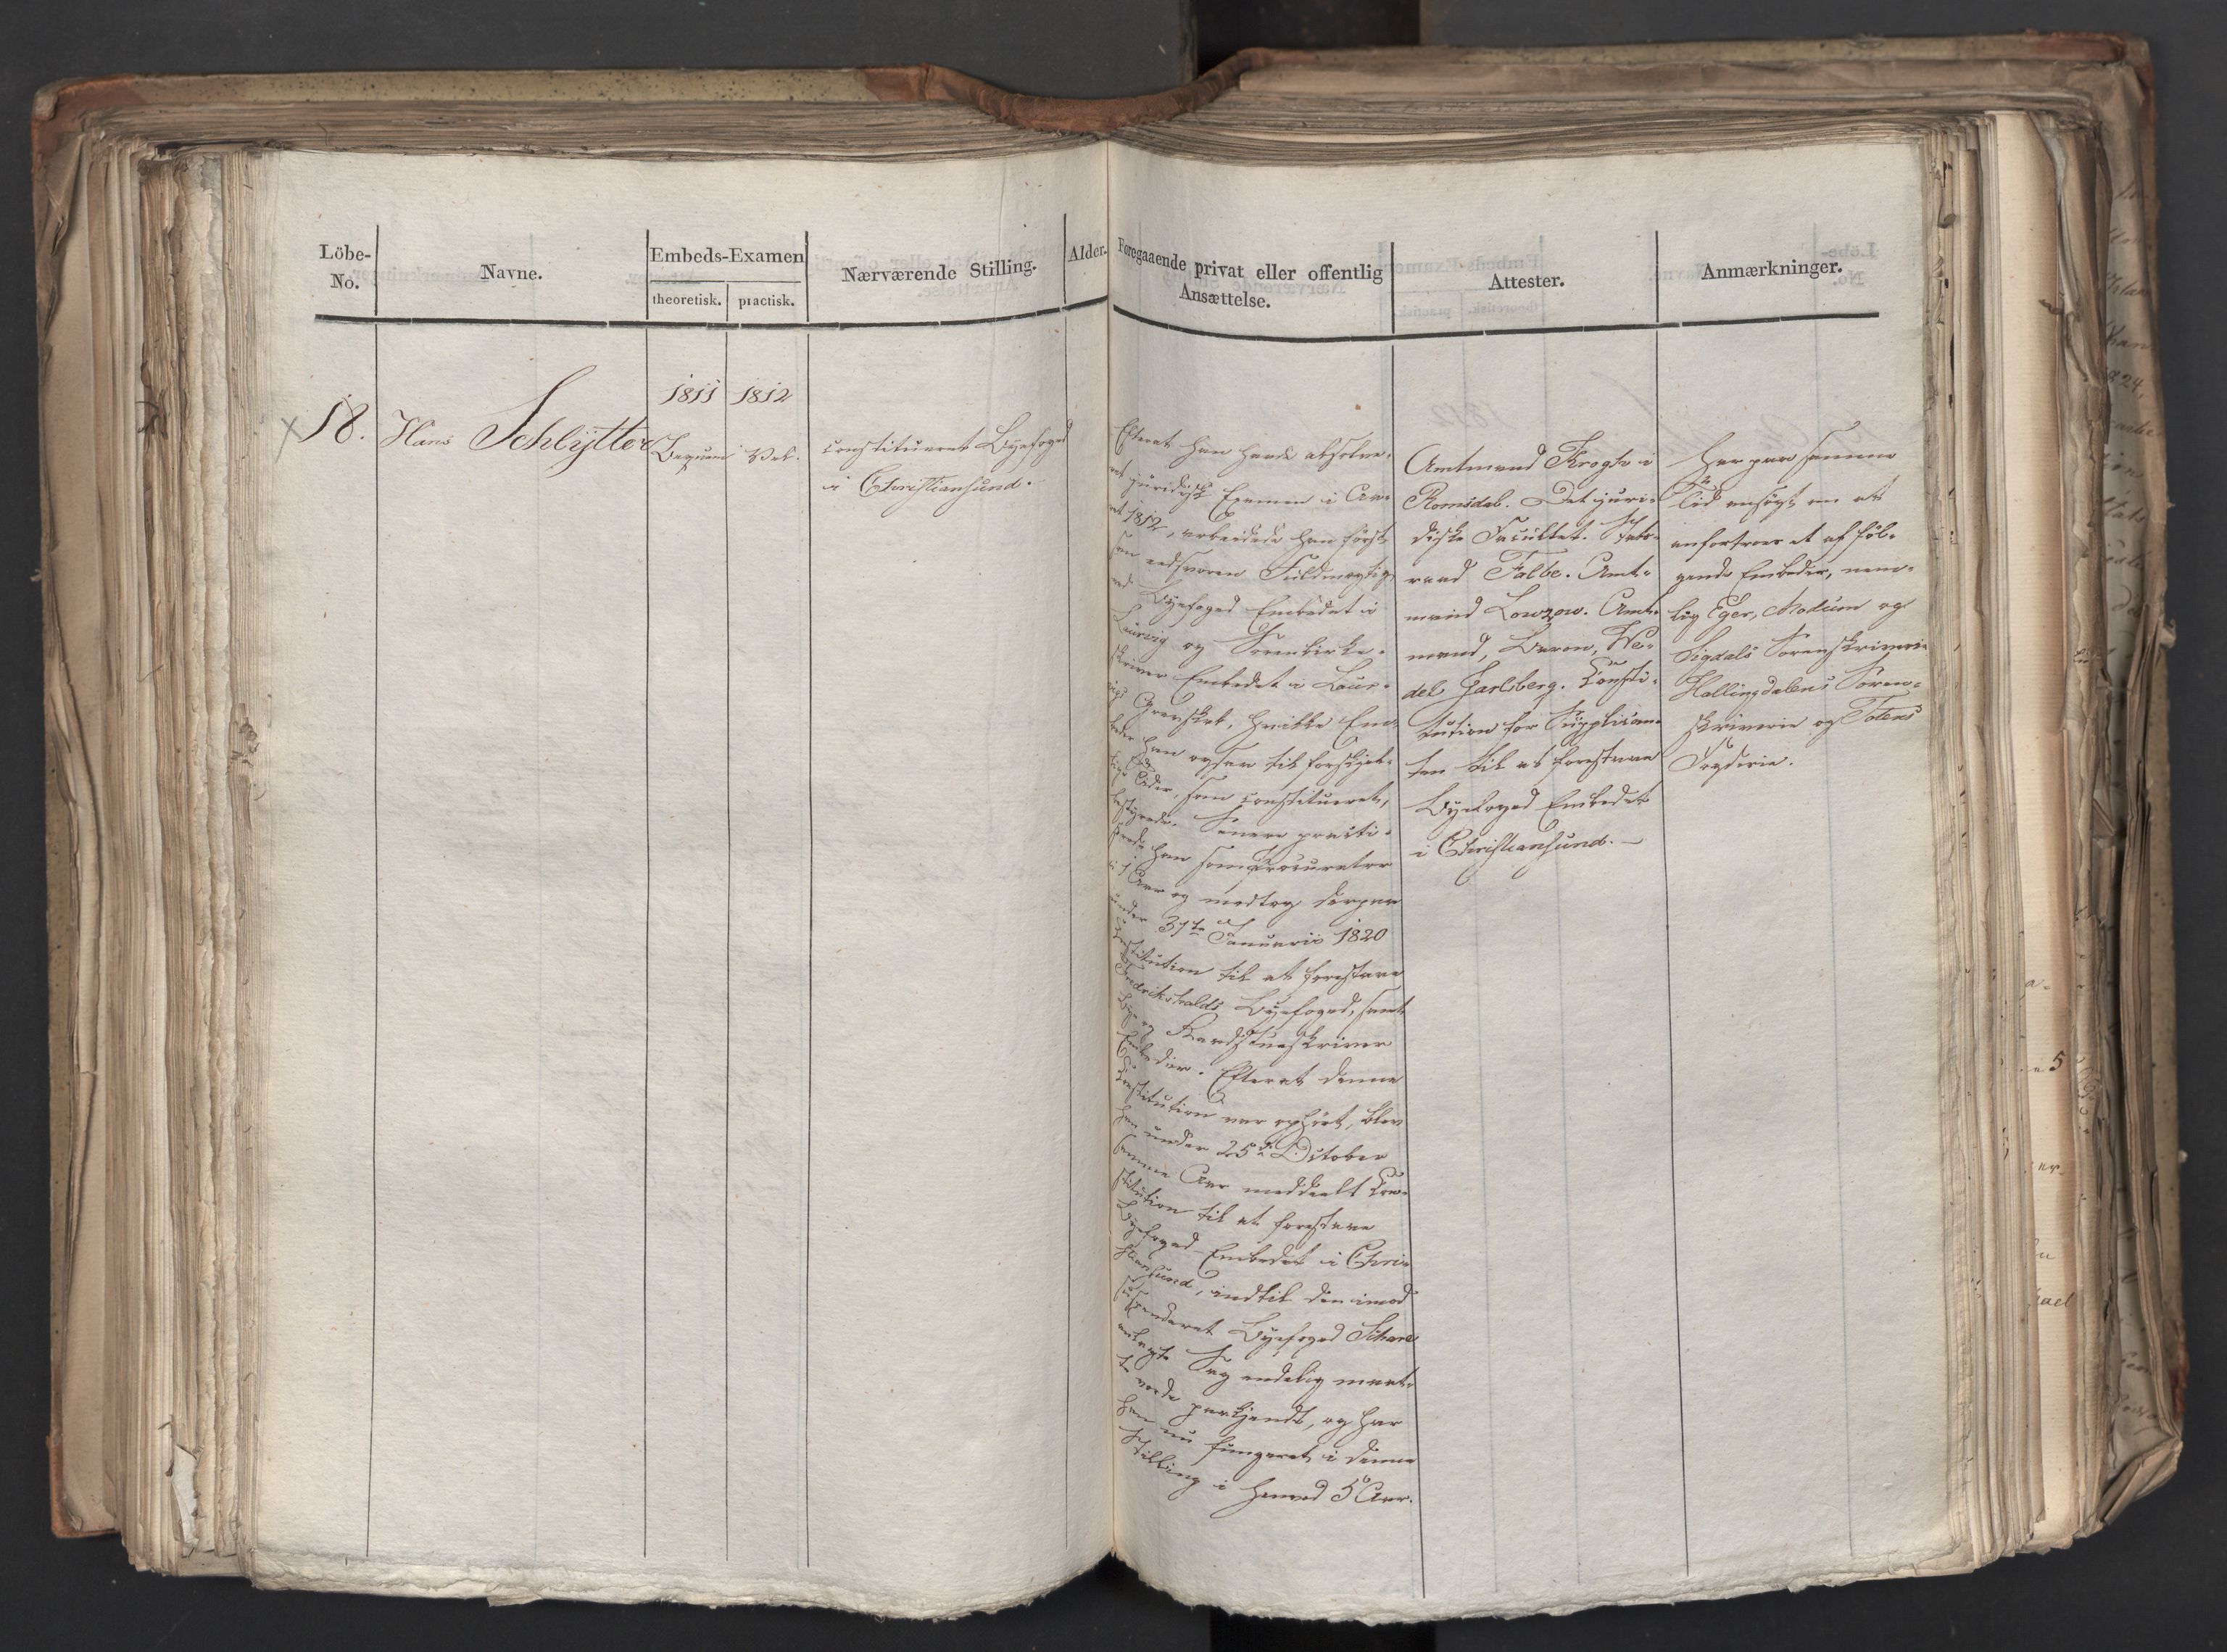 Löbe-
No.
Navne.
Embeds-Examen
theoretisk.
practisk.
Nærværende Stilling.
Alder.
Foregaaende privat eller offentlig
Ansættelse.
Attester.
Anmærkninger.
18.
Hans Schlytter
1811
1812
Beqvem
Vel.
constitueret Byefoged
i Christiansund.
Efterat han havde absolve-
ret juridisk Examen i Aa-
ret 1812, arbeidede han först
som edsvoren Fuldmægtig
ved Byefoged Embedet i
Laurvig og Sorenbirke-
skriver Embedet i Laur-
vigs Grevskab, hvilke Em-
beder han ogsaa til forskjel-
lige Tider, som constitueret,
bestyrede. Senere practi-
serede han som Procurator
i 1 Aar og modtog derpaa
under 31te Januarii 1820
Constitution til at forestaae
Fredrikshalds Byefoged, samt
Bye og Raadstueskriver
Embeder. Efterat denne
Constitution var ophört, blev
han under 25de October
samme Aar meddeelt Con-
stitution til at forestaae
Byefoged-Embedet i Chri-
stiansund, indtil den imod
suspenderet Byefoged
anlagte Sag endelig maat-
te vorde paakjendt, og har
han nu fungeret i denne
Stilling i henved 5 Aar.
Amtmand Krogh i
Romsdal. Det juri-
diske Facultet. Stats-
raad Falbe. Amt-
mand Lowzow. Amt-
mand, Baron, We-
del Jarlsberg. Consti-
tution for Supplican-
ten til at forestaae
Byefoged Embedet
i Christiansund. -
Har paa samme
Tid ansögt om at
anfortroes et af föl-
gende Embeder, nem-
lig Eger, Modum og
Sigdals Sorenskriverie
Hallingdalens Soren-
skriverie og Totens
Fogderie.